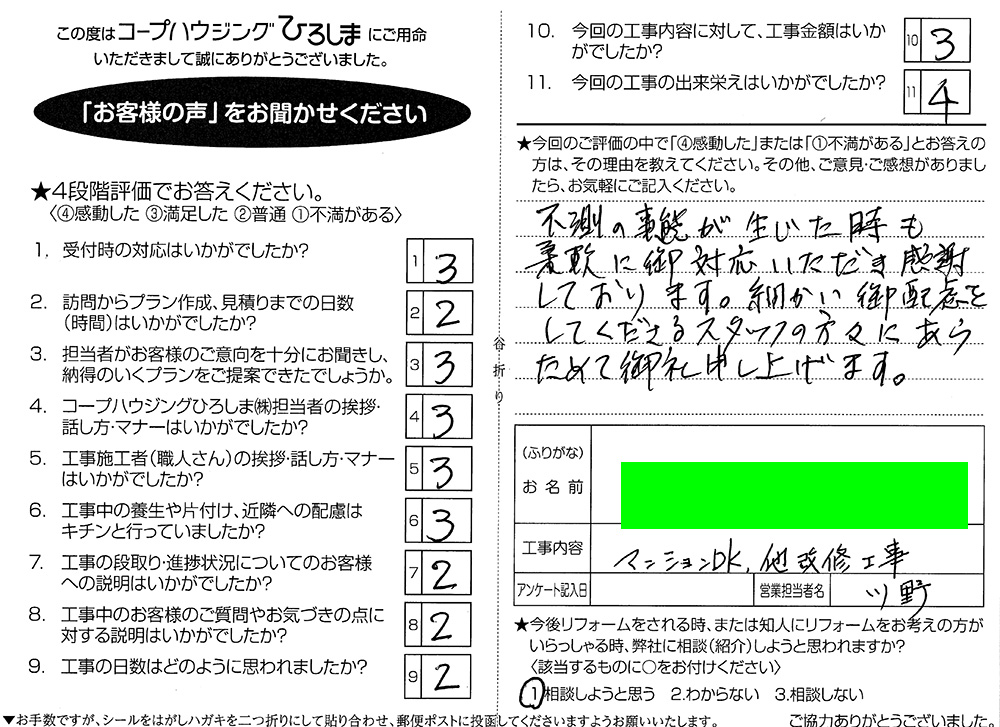 この度はコープハウジングひろしまにご用命
いただきまして誠にありがとうございました。
「お客様の声」をお聞かせください
★4段階評価でお答えください。
〈④感動した ③満足した ②普通 ①不満がある〉
1. 受付時の対応はいかがでしたか?
1 3
2. 訪問からプラン作成、見積りまでの日数
(時間)はいかがでしたか?
2 2
3. 担当者がお客様のご意向を十分にお聞きし、
納得のいくプランをご提案できたでしょうか。
3 3
4. コープハウジングひろしま㈱担当者の挨拶・
話し方・マナーはいかがでしたか?
4 3
5. 工事施工者(職人さん)の挨拶・話し方・マナー
はいかがでしたか?
5 3
6. 工事中の養生や片付け、近隣への配慮は
キチンと行っていましたか?
6 3
7. 工事の段取り・進捗状況についてのお客様
への説明はいかがでしたか?
7 2
8. 工事中のお客様のご質問やお気づきの点に
対する説明はいかがでしたか?
8 2
9. 工事の日数はどのように思われましたか?
9 2
谷折り
10. 今回の工事内容に対して、工事金額はいか
がでしたか?
10 3
11. 今回の工事の出来栄えはいかがでしたか?
11 4
★今回のご評価の中で「④感動した」または「①不満がある」とお答えの
方は、その理由を教えてください。その他、ご意見・ご感想がありまし
たら、お気軽にご記入ください。
不測の事態が生じた時も
柔軟に御対応いただき感謝
しております。細かい御配慮を
してくださるスタッフの方々にあら
ためて御礼申し上げます。
(ふりがな)
お名前
工事内容
マンションDK,他改修工事
アンケート記入日
営業担当者名
ツ野
★今後リフォームをされる時、または知人にリフォームをお考えの方が
いらっしゃる時、弊社に相談(紹介)しようと思われますか?
〈該当するものに○をお付けください〉
1.相談しようと思う 2.わからない 3.相談しない
▼お手数ですが、シールをはがしハガキを二つ折りにして貼り合わせ、郵便ポストに投函してくださいますようお願いいたします。
ご協力ありがとうございました。